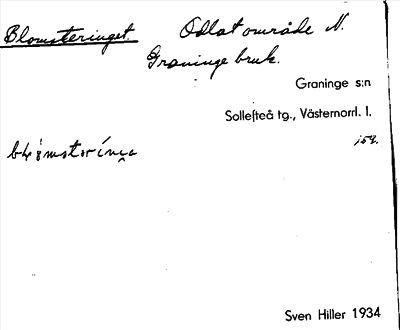 Blomsteringet. Odlat område N.
Graninge bruk.
Graninge s:n
Sollefteå tg., Västernorrl. l.
Sven Hiller 1934